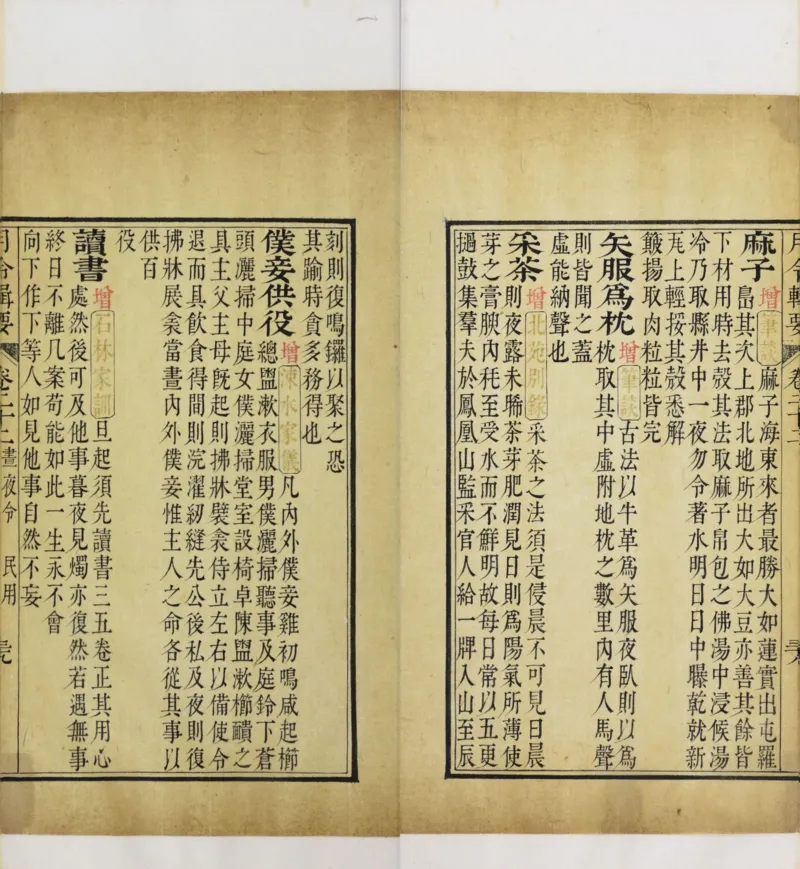 月令輯要 卷二十二
麻子 增 筆談 麻子海東來者最勝大如蓮實出屯羅
島其次上郡北地所出大如大豆亦善其餘皆
下材用時去殼其法取麻子帛包之沸湯中浸候湯
冷乃取縣井中一夜勿令著水明日日中曝乾就新
瓦上輕挼其殼悉解
簸揚取肉粒粒皆完
矢服爲枕 增 筆談 古法以牛革爲矢服夜臥則以爲
枕取其中虛附地枕之數里內有人馬聲
則皆聞之蓋
虛能納聲也
采茶 增 北苑別錄 采茶之法須是侵晨不可見日晨
則夜露未晞茶芽肥潤見日則爲陽氣所薄使
芽之膏腴內耗至受水而不鮮明故每日常以五更
撾鼓集羣夫於鳳凰山監采官人給一牌入山至辰
刻則復鳴鑼以聚之恐
其踰時貪多務得也
僕妾供役 增 涑水家儀 凡內外僕妾雞初鳴咸起櫛
總盥漱衣服男僕灑掃聽事及庭鈴下蒼
頭灑掃中庭女僕灑掃堂室設椅卓陳盥漱櫛靧之
具主父主母旣起則拂牀襞衾侍立左右以備使令
退而具飲食得閒則浣濯紉縫先公後私及夜則復
拂牀展衾當晝內外僕妾惟主人之命各從其事以
供百
役
讀書 增 石林家訓 旦起須先讀書三五卷正其用心
處然後可及他事暮夜見燭亦復然若遇無事
終日不離几案苟能如此一生永不會
向下作下等人如見他事自然不妄
月令輯要 卷二十二 晝夜令 民用